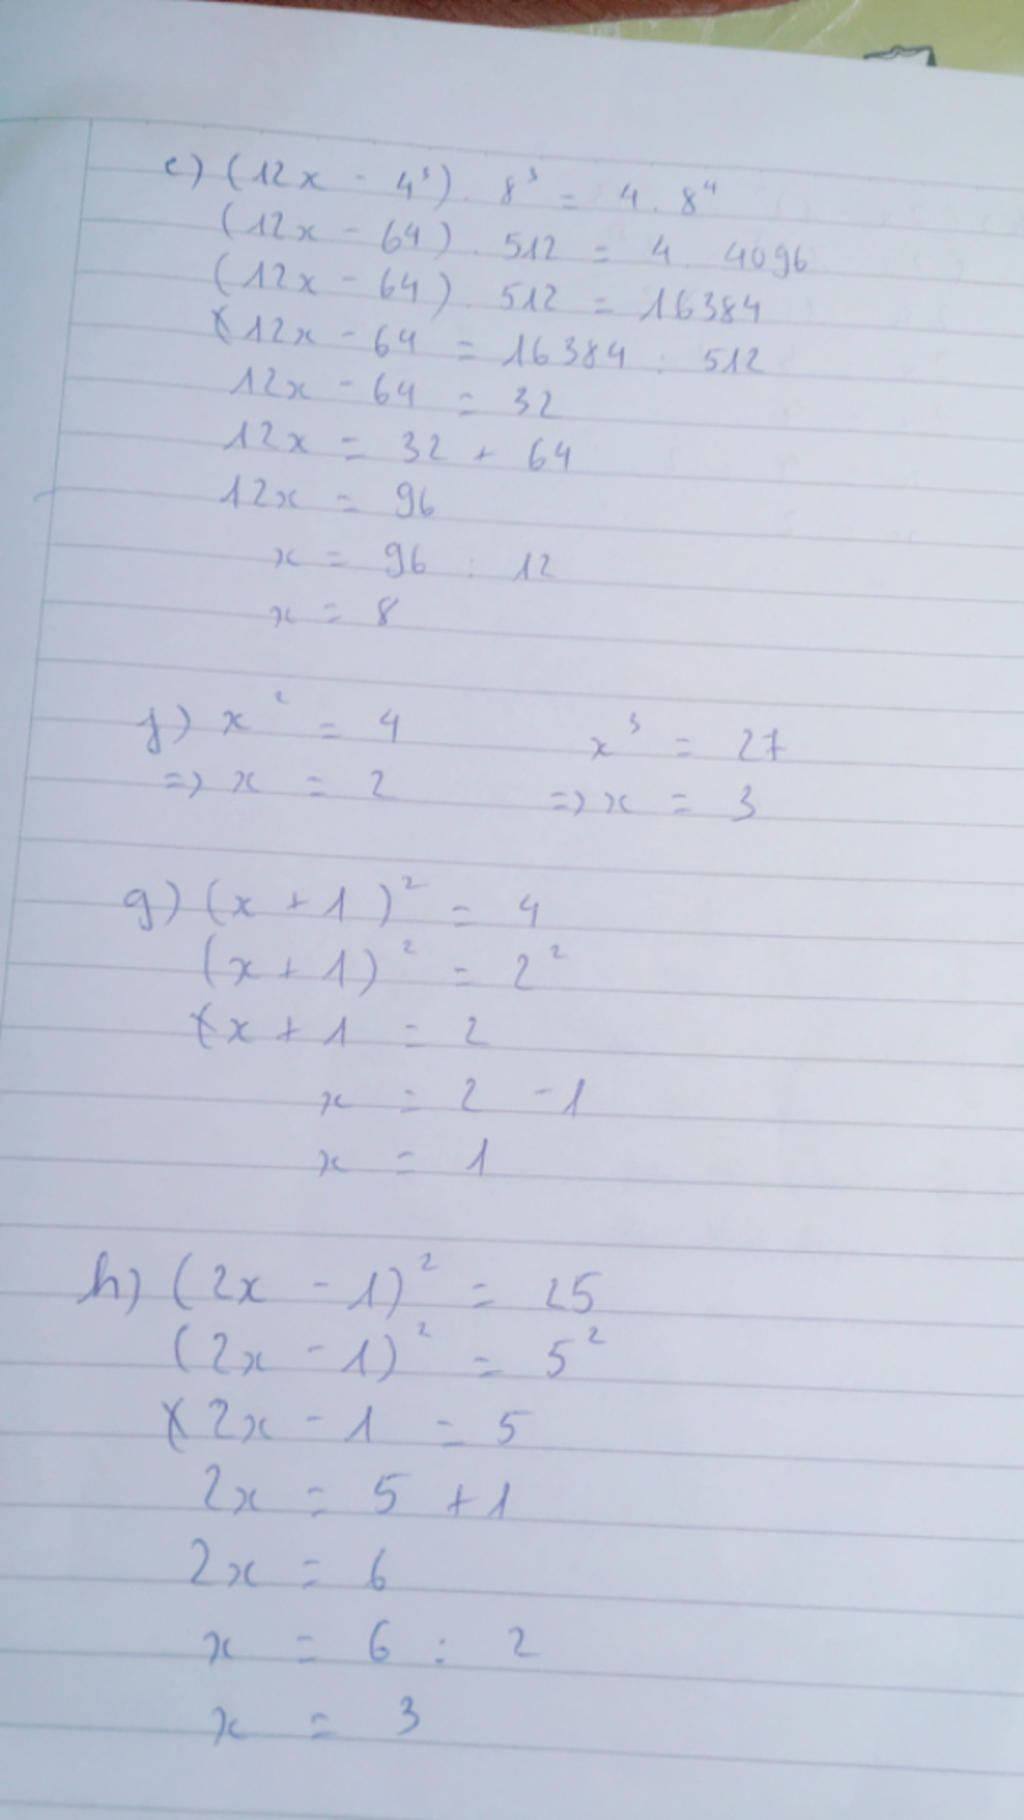 e) (12x - 4³) . 8³ = 4 . 8⁴
(12x - 64) . 512 = 4 . 4096
(12x - 64) . 512 = 16384
12x - 64 = 16384 : 512
12x - 64 = 32
12x = 32 + 64
12x = 96
x = 96 : 12
x = 8
f) x² = 4 x³ = 27
=> x = 2 => x = 3
g) (x + 1)² = 4
(x + 1)² = 2²
x + 1 = 2
x = 2 - 1
x = 1
h) (2x - 1)² = 25
(2x - 1)² = 5²
2x - 1 = 5
2x = 5 + 1
2x = 6
x = 6 : 2
x = 3